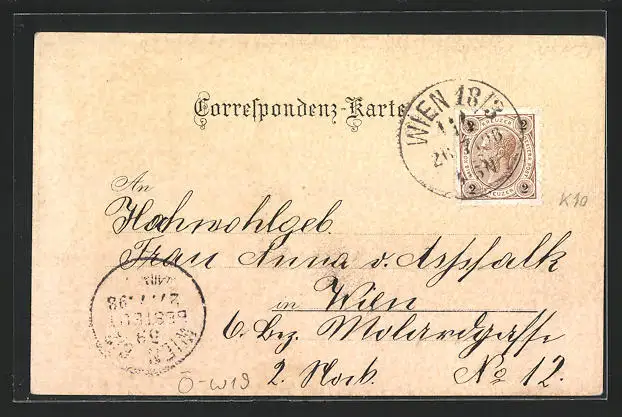 Correspondenz-Karte
WIEN 18/3
2 KREUZER 2
2 2
K10
An
Hochwohlgeb.
Frau Anna v. Asphalk
in Wien
6. Bez. Molardgasse
2. Stock. No 12.
WIEN
59
BESTELLT
27.7.98
Ö-W19